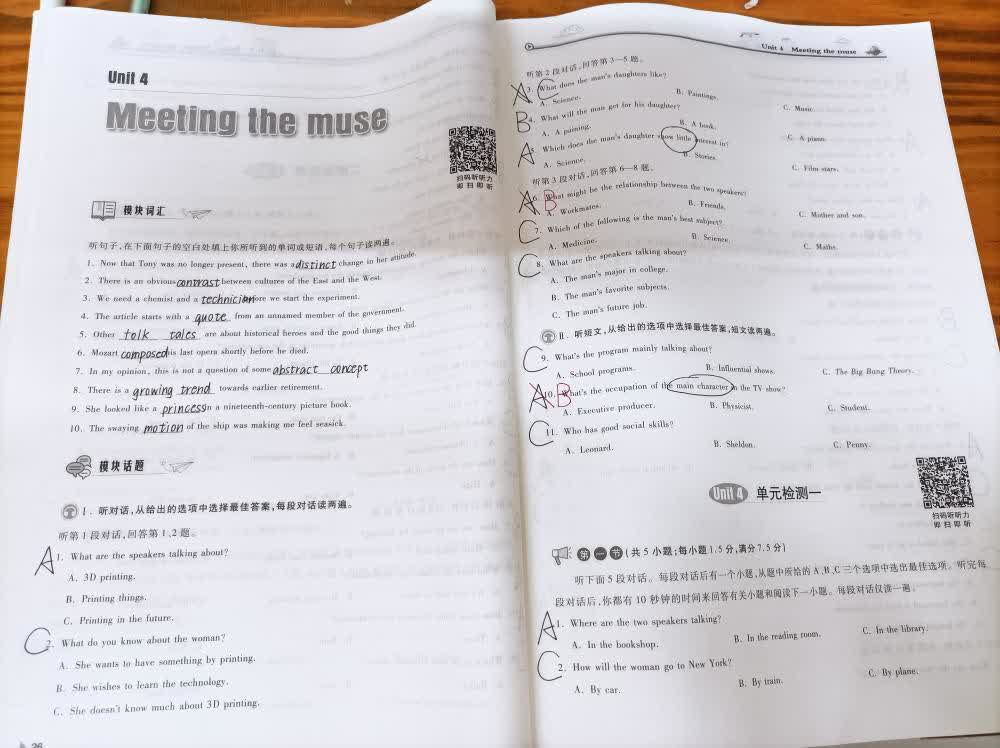 Unit 4
Meeting the muse
扫码听听力
即扫即听
模块词汇
听句子,在下面句子的空白处填上你所听到的单词或短语,每个句子读两遍。
1. Now that Tony was no longer present, there was a distinct change in her attitude.
2. There is an obvious contrast between cultures of the East and the West.
3. We need a chemist and a technician before we start the experiment.
4. The article starts with a quote from an unnamed member of the government.
5. Other folk tales are about historical heroes and the good things they did.
6. Mozart composed his last opera shortly before he died.
7. In my opinion, this is not a question of some abstract concept
8. There is a growing trend towards earlier retirement.
9. She looked like a princess in a nineteenth-century picture book.
10. The swaying motion of the ship was making me feel seasick.
模块话题
Ⅰ. 听对话,从给出的选项中选择最佳答案,每段对话读两遍。
听第1段对话,回答第1、2题。
A 1. What are the speakers talking about?
A. 3D printing.
B. Printing things.
C. Printing in the future.
C 2. What do you know about the woman?
A. She wants to have something by printing.
B. She wishes to learn the technology.
C. She doesn't know much about 3D printing.
26
Unit 4 Meeting the muse
听第2段对话,回答第3~5题。
A C 3. What does the man's daughters like?
A. Science. B. Paintings. C. Music.
B 4. What will the man get for his daughter?
A. A painting. B. A book. C. A piano.
A 5. Which does the man's daughter show little interest in?
A. Science. B. Stories. C. Film stars.
听第3段对话,回答第6~8题。
A B 6. What might be the relationship between the two speakers?
A. Workmates. B. Friends. C. Mother and son.
C 7. Which of the following is the man's best subject?
A. Medicine. B. Science. C. Maths.
C 8. What are the speakers talking about?
A. The man's major in college.
B. The man's favorite subjects.
C. The man's future job.
Ⅱ. 听短文,从给出的选项中选择最佳答案,短文读两遍。
C 9. What's the program mainly talking about?
A. School programs. B. Influential shows. C. The Big Bang Theory.
A B 10. What's the occupation of the main character in the TV show?
A. Executive producer. B. Physicist. C. Student.
C 11. Who has good social skills?
A. Leonard. B. Sheldon. C. Penny.
Unit 4 单元检测一
扫码听听力
即扫即听
第一节 (共5小题;每小题1.5分,满分7.5分)
听下面5段对话。每段对话后有一个小题,从题中所给的A、B、C三个选项中选出最佳选项。听完每
段对话后,你都有10秒钟的时间来回答有关小题和阅读下一小题。每段对话仅读一遍。
A 1. Where are the two speakers talking?
A. In the bookshop. B. In the reading room. C. In the library.
C 2. How will the woman go to New York?
A. By car. B. By train. C. By plane.